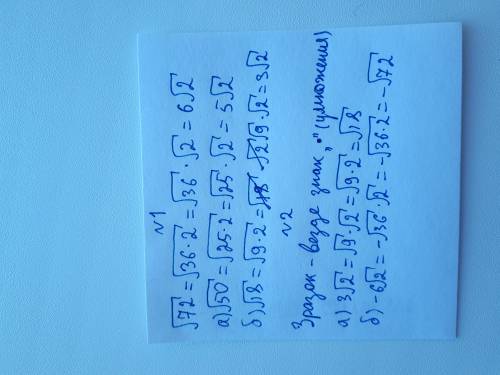 №1
√72 = √36·2 = √36 · √2 = 6√2
а) √50 = √25·2 = √25 · √2 = 5√2
б) √18 = √9·2 = √9 · √2 = 3√2
№2
Зразок - везде знак „·" (умножения)
а) 3√2 = √9 · √2 = √9·2 = √18
б) -6√2 = -√36 · √2 = -√36·2 = -√72